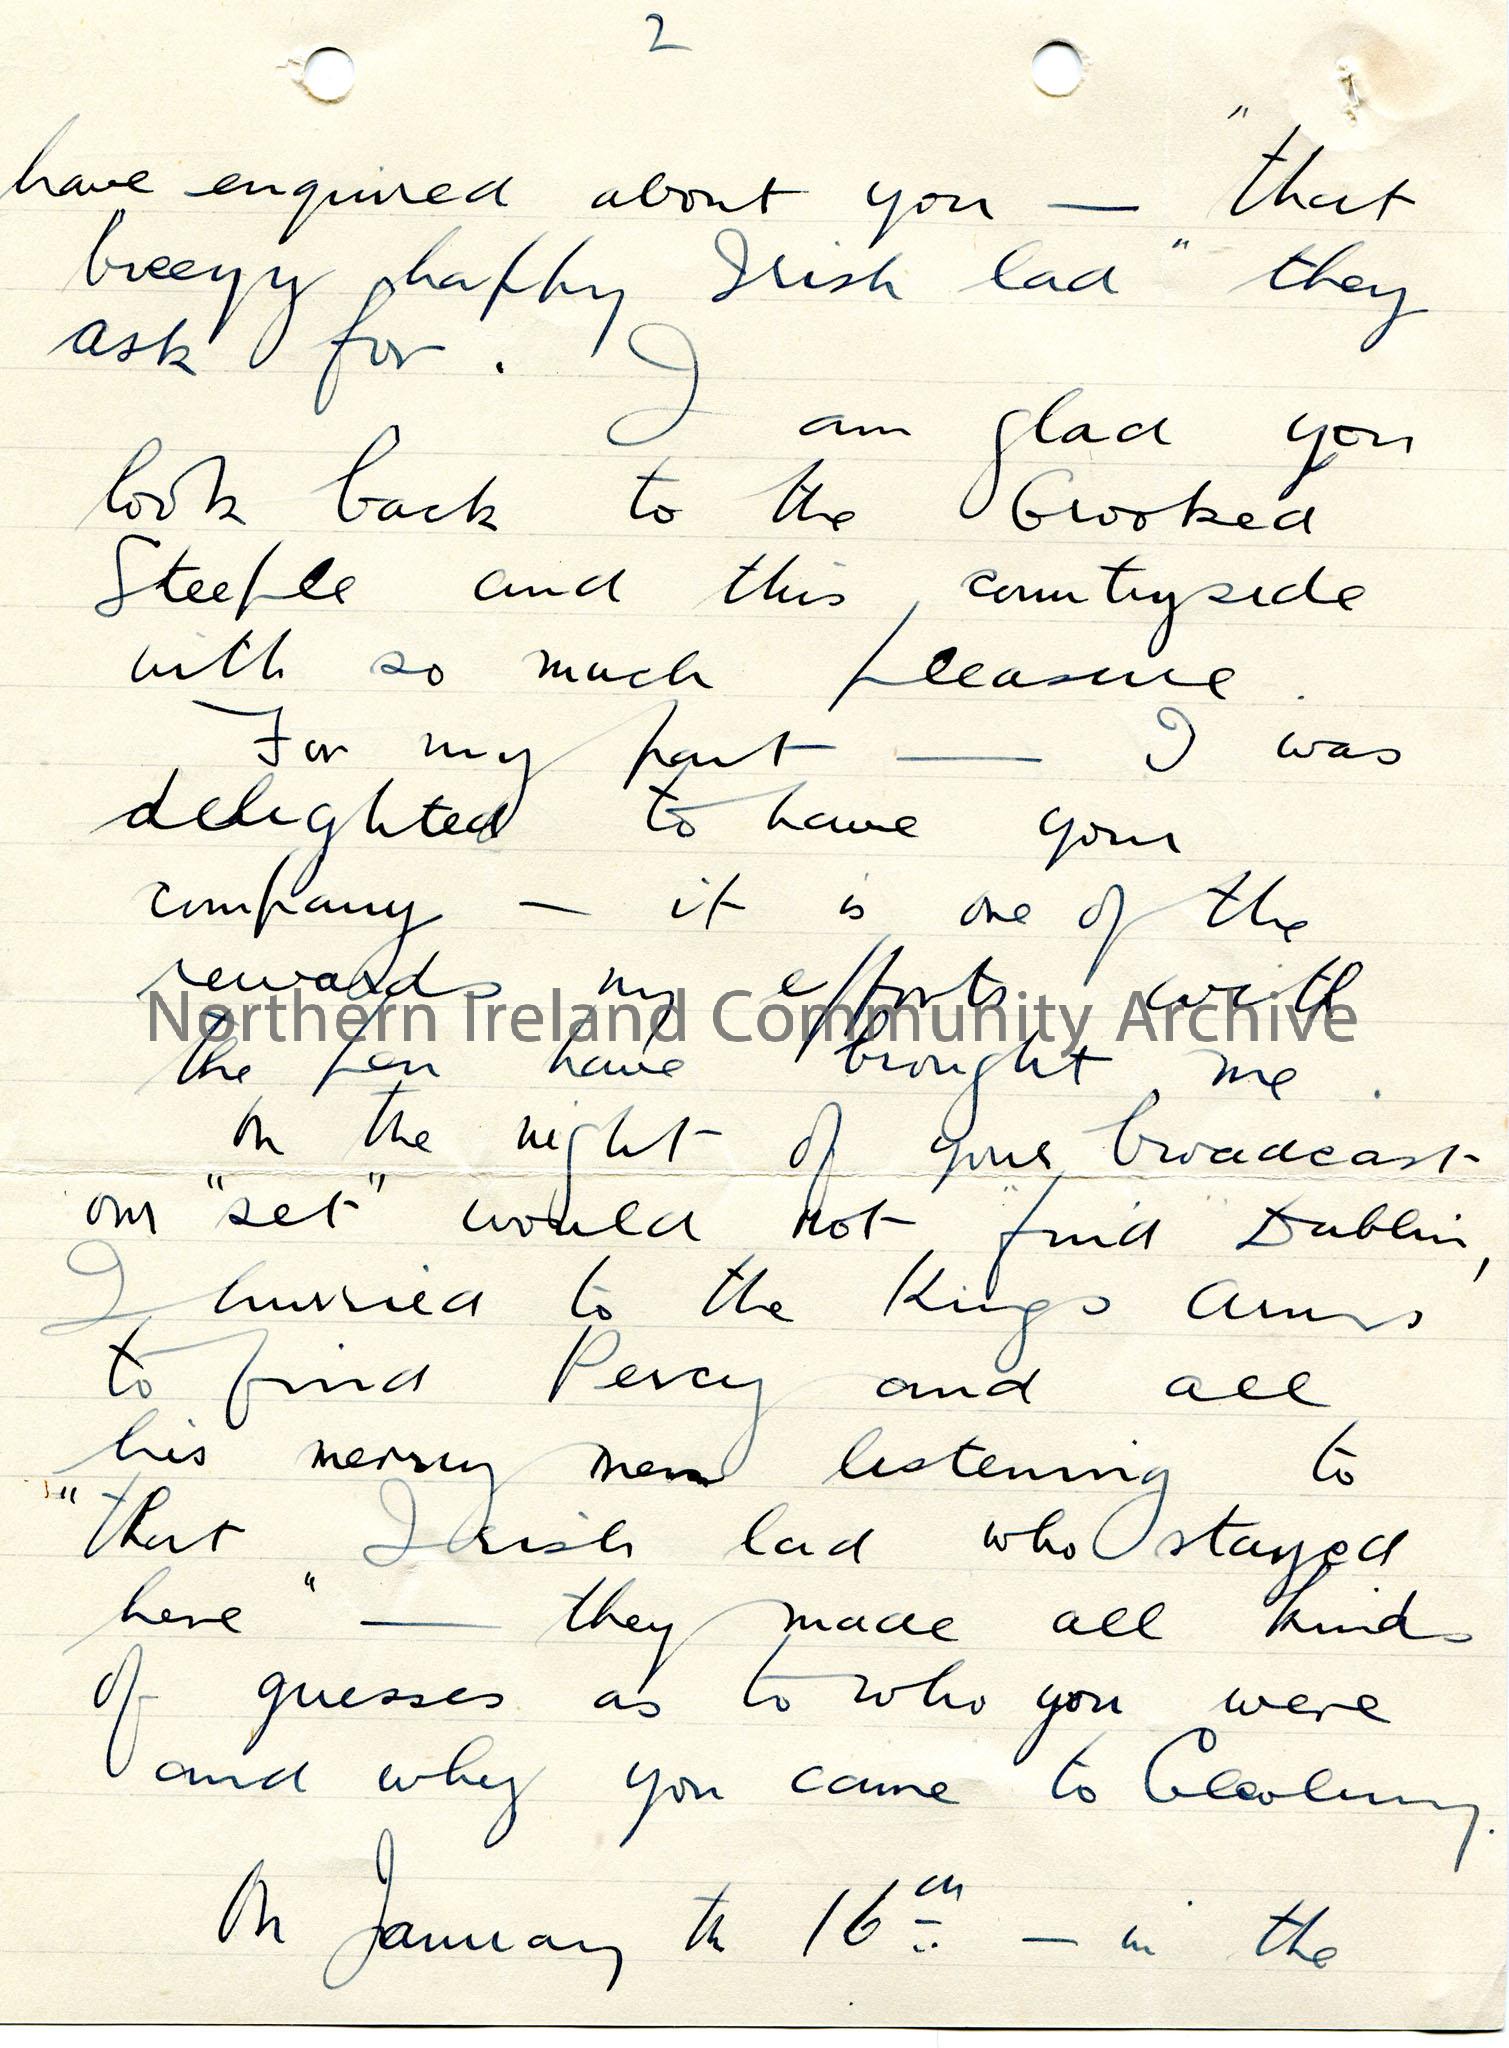 2
have enquired about you — "that
breezy happy Irish lad" they
ask for. I am glad you
look back to the Crooked
Steeple and this countryside
with so much pleasure.
For my part — I was
delighted to have your
company — it is one of the
rewards my efforts with
Northern Ireland Community Archive
the pen have brought me.
On the night of your broadcast
our "set" would not "find" Dublin,
I hurried to the Kings Arms
to find Percy and all
his merry men listening to
"that Irish lad who stayed
here" — they made all kinds
of guesses as to who you were
and why you came to Cleobury.
On January th 16th — in the